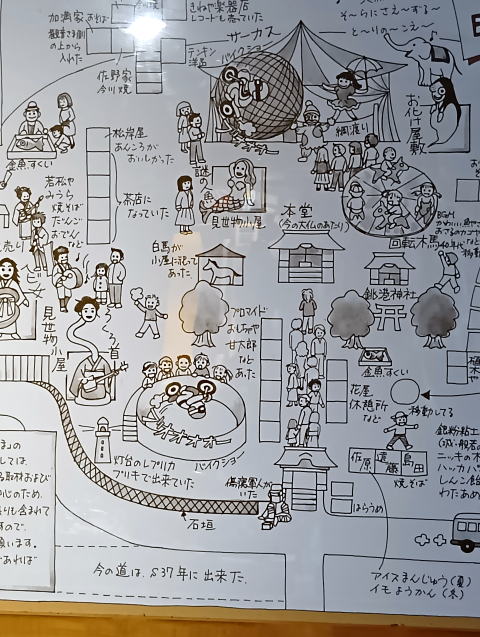 加満家
の上から
入れた
きねや楽器店
レコードも売っていた
テンキン
洋品
佐野家
今川焼
サーカス
バイクショー
そーらにさえーずるー
とーりのーこえー
お化け屋敷
綱渡い
金魚すくい
松岸屋
あんころが
おいしかった
茶店に
なっていた
若松や
みうら
焼そば
だんご
おでん
など
売り
謎の魚
見世物小屋
本堂
(今の大仏のあたり)
回転木馬
白馬が
小屋に祀って
あった
銚港神社
見世物小屋
ろくろ首や
ブロマイド
おもちゃや
甘太郎
など
あった
金魚すくい
花屋
休憩所
など
移動してる
佐原
遠藤
島田
焼そば
ニッキの木
ハッカパ
しんこ飴
わたあめ
ウオオオオー
バイクショー
灯台のレプリカ
ブリキで出来ていた
傷痍軍人が
いた
はらうめ
石垣
今の道は、S37年に出来た。
アイスまんじゅう(夏)
イモようかん(冬)